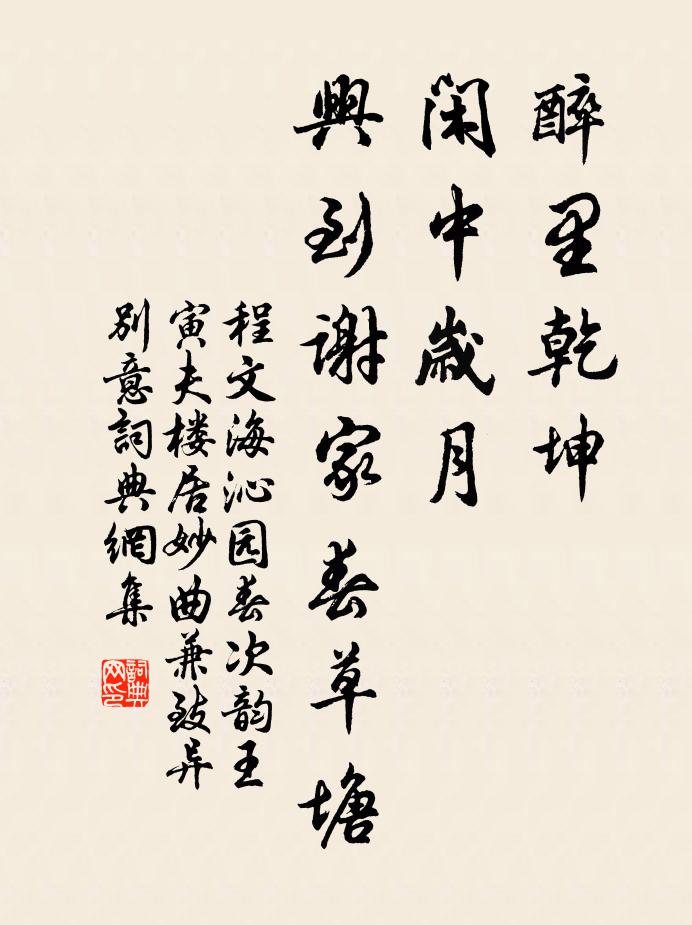 醉里乾坤
閑中歲月
興到謝家春草塘
程文海沁园春次韵王
寅夫楼居妙曲兼致异
别意詞典網集
詞典
网印